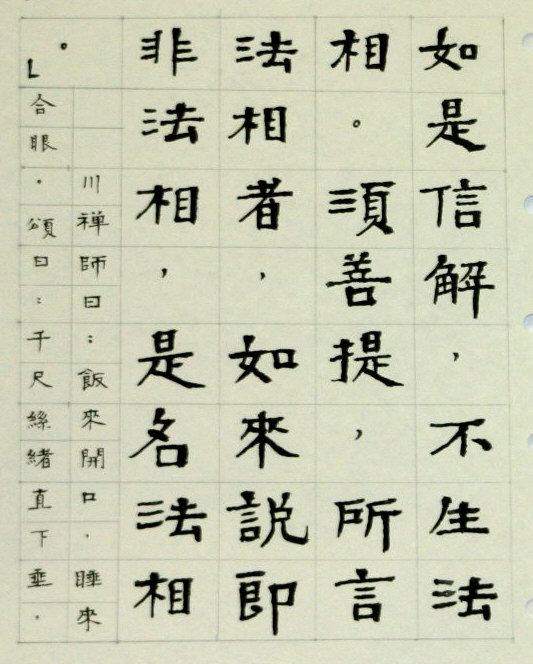 如是信解，不生法
相。須善提，所言
法相者，如來説即
非法相，是名法相
。」
川禅師曰：飯來開口，睡來
合眼。頌曰：千尺絲緒直下垂，